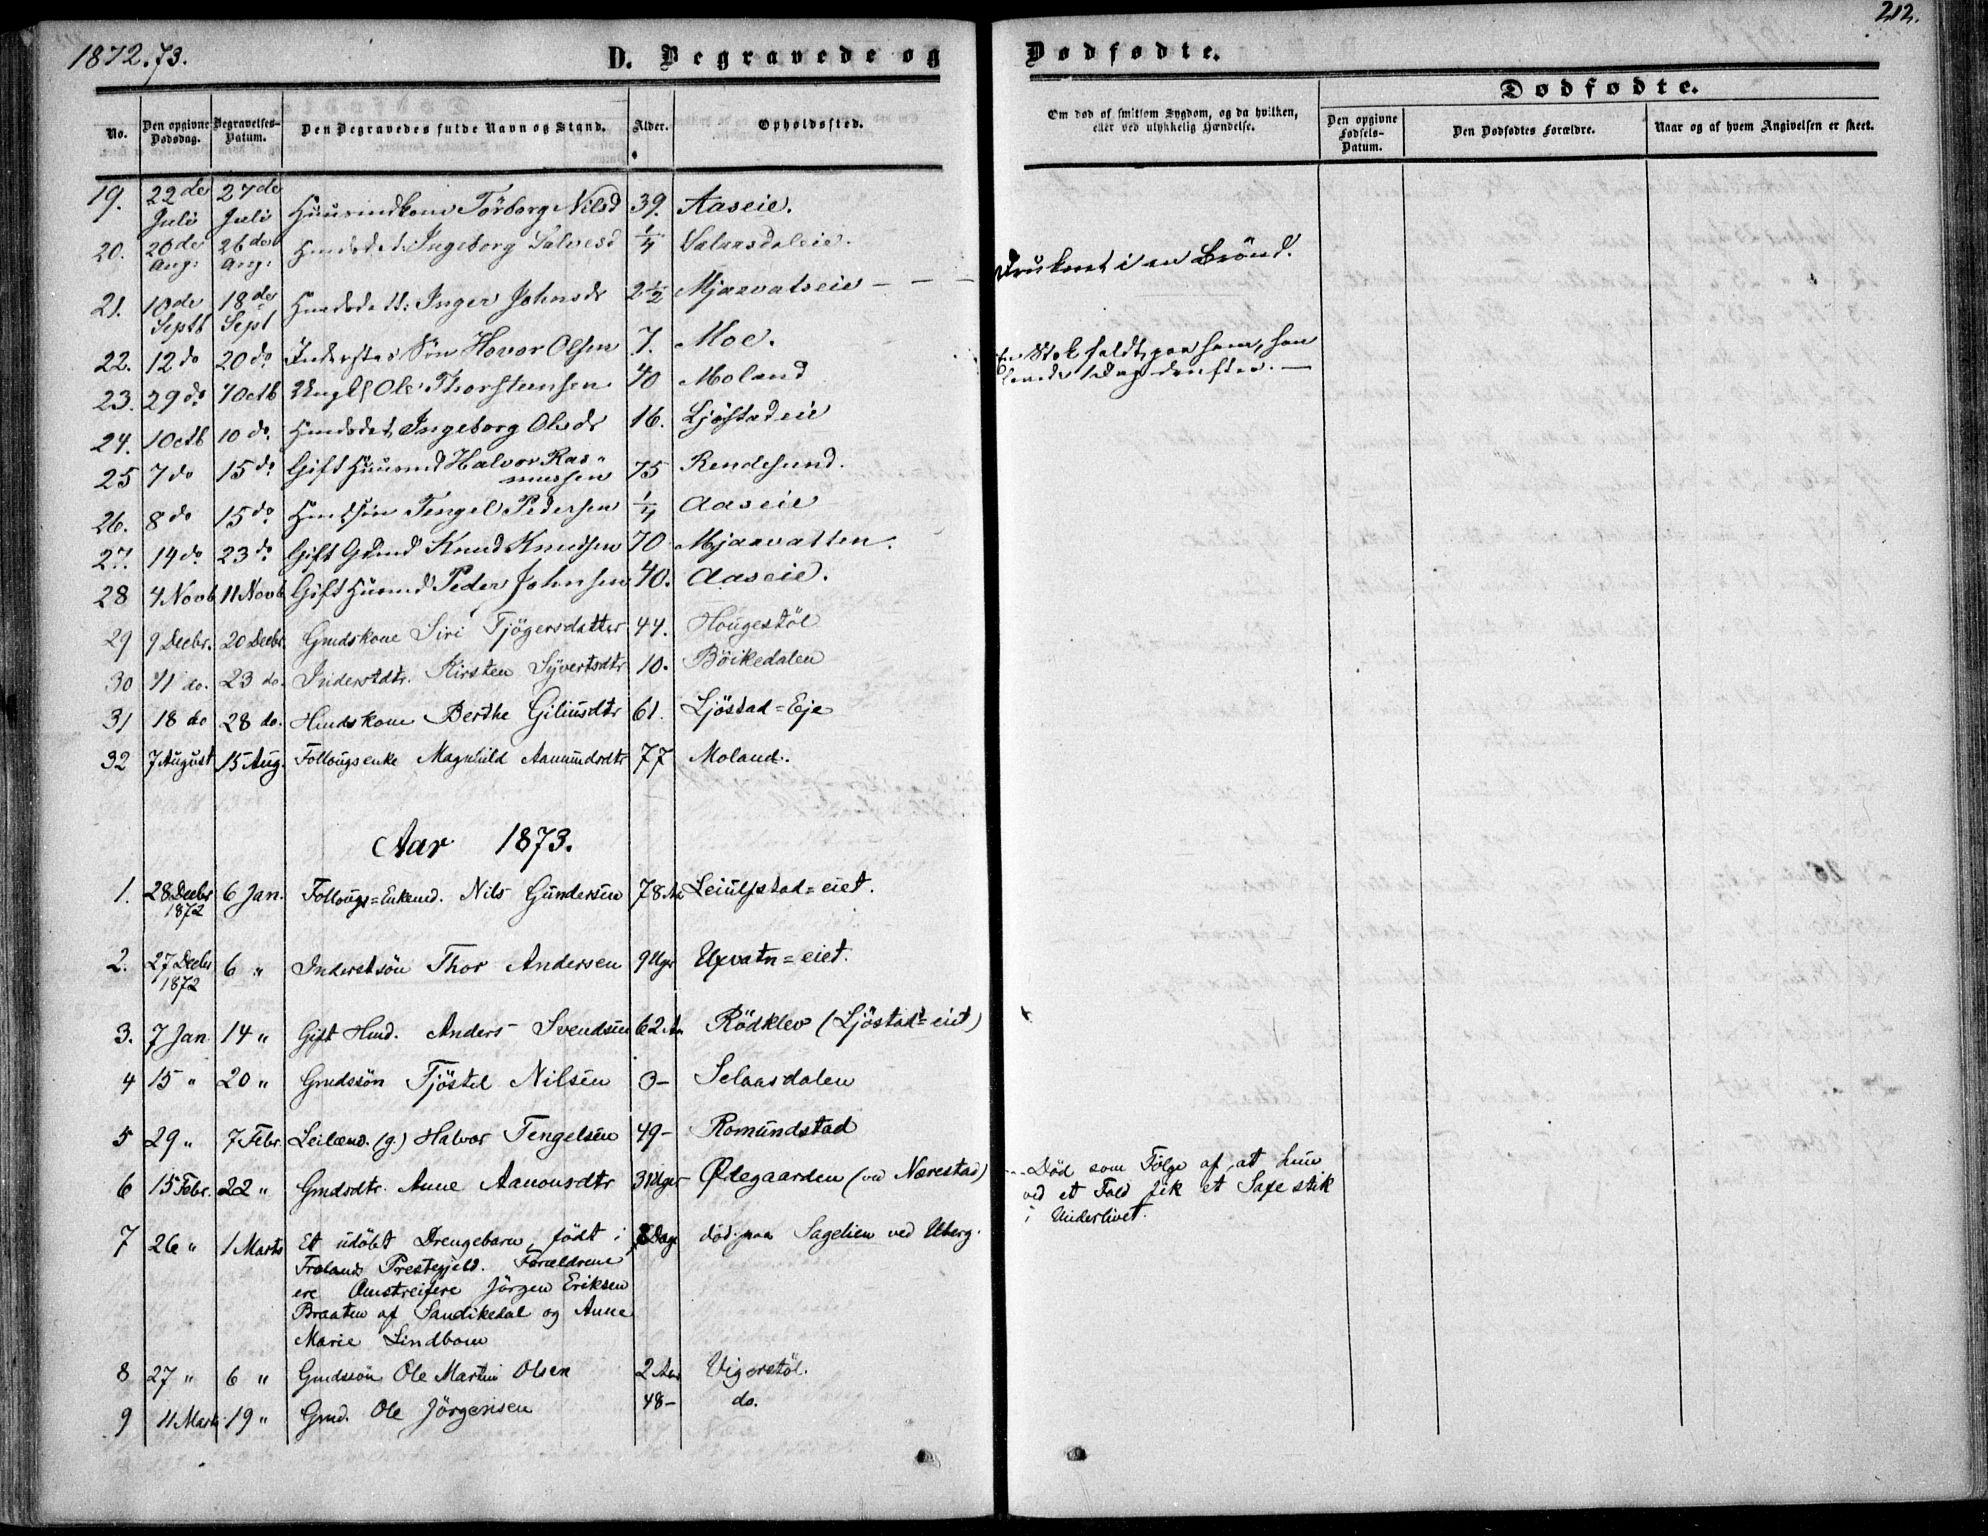 1872.73.
D. Begravede og
Dødfødte.
212.
No.
Den opgivne Dødsdag.
Begravelses-Datum.
Den Begravedes fulde Navn og Stand.
Alder.
Opholdssted.
Om død af smitsom Sygdom, og da hvilken, eller ved ulykkelig Hændelse.
Dødfødte.
Den opgivne Fødsels-Datum.
Den Dødfødtes Forældre.
Naar og af hvem Angivelsen er skeet.
19. 22de Juli 27de Juli Huusmdkone Torborg Nilsd 39. Aaseie.
20. 20de Aug: 26de Aug: Ingeborg Salvesd 1/4 Selaasdaleie.
21. 10de Septb 18de Sept Inger Johnsdr 2 1/2 Mjaavatseie - - - Druknet i en Brønd.
22. 12 do 20 do Inderstes Søn Hovor Olsen 7. Moe. En Stok faldt paa ham, han
levede 1 Dag derefter. —
23. 29 do 7 Octb Ungk Ole Thorstensen 40 Moland
24. 1 Octb 10 do. Ingeborg Olsdr 16. Ljøstadeie
25 7 do 15 do Gift Huusmd Halvor Ras-
mussen 75 Rendesund.
26. 8 do 15 do Tengel Pedersen 1/4 Aaseie
27. 14 do 23 do Gift Gaardmd Knud Knudsen 70 Mjaavatten.
28 4 Novb 11 Novb Gift Huusmd Peder Johnsen 40. Aaseie.
29 9 Decbr. 20 Decbr. Gmdskone Siri Tjøgersdatter 44. Hougestøl
30 11 do. 23 do. Inderstdtr. Kirsten Syvertsdtr 10. Bøikedalen
31 18 do 28 do. Hmdskone Berthe Giliusdtr 61. Ljøstad=Eje
32 7 August 15 Aug. Follougsenke Magnhild Aanundsdtr 77 Moland.
Aar 1873.
1. 28 Decbr 1872 6 Jan. Follougs=Enkemd. Nils Gundersen 78 Aar Leiulfstad=eiet.
2. 27 Decbr 1872 6 " Inderstsøn Thor Andersen 9 Uger Uxvatn=eiet.
3. 7 Jan 14 " Gift Hmd. Anders Svendsen 62 Aar Rødklev (Ljøstad=eiet)
4 15 " 20 " Gmdssøn Tjøstel Nilsen 3- Selaasdalen
5 29 " 7 Febr. Leilænd. (g.) Halvor Tengelsen 49- Romundstad
6 15 Febr. 22 " Gmdsdtr. Anne Aanonsdtr 3 Uger Ødegaarden (ved Nærestad) --- Død som Følge af, at hun
ved et Fald fik et Saxestik
i Underlivet.
7 26 " 1 Marts Et udøbt Drengebarn, født i 8 Dage død paa Sagelien ved Uberg.
Froland Prestegjeld. Forældrene
ere Omstreifere Jørgen Eriksen
Braaten af Sandikedal og Anne
Marie Lindbom
8 27 " 6 " Gmdssøn Ole Martin Olsen 2 Aar Vigerstøl.
9 11 Marts 19 " Gmd. Ole Jørgensen 48- do.